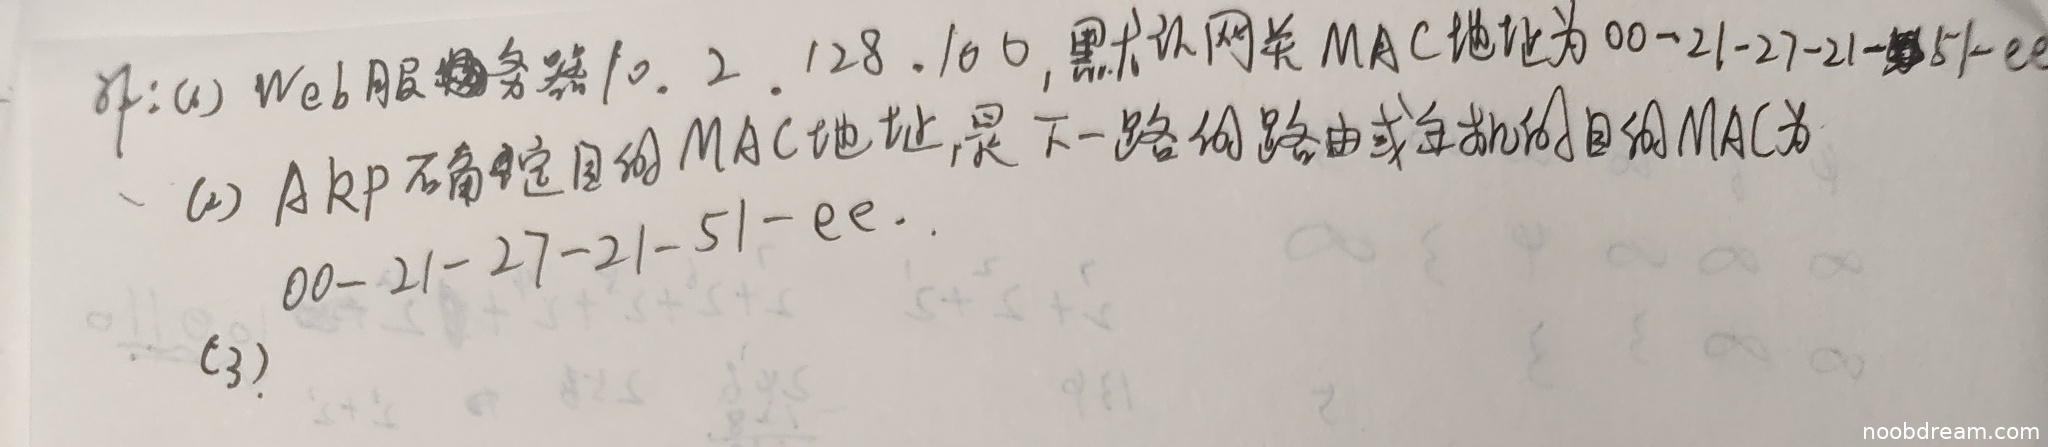 解:(1) Web服务器10.2.128.100,默认网关MAC地址为00-21-27-21-51-ee
(2) ARP 确定目的MAC地址,是下一路的路由或主机的目的MAC为
00-21-27-21-51-ee.
(3)
noobdream.com